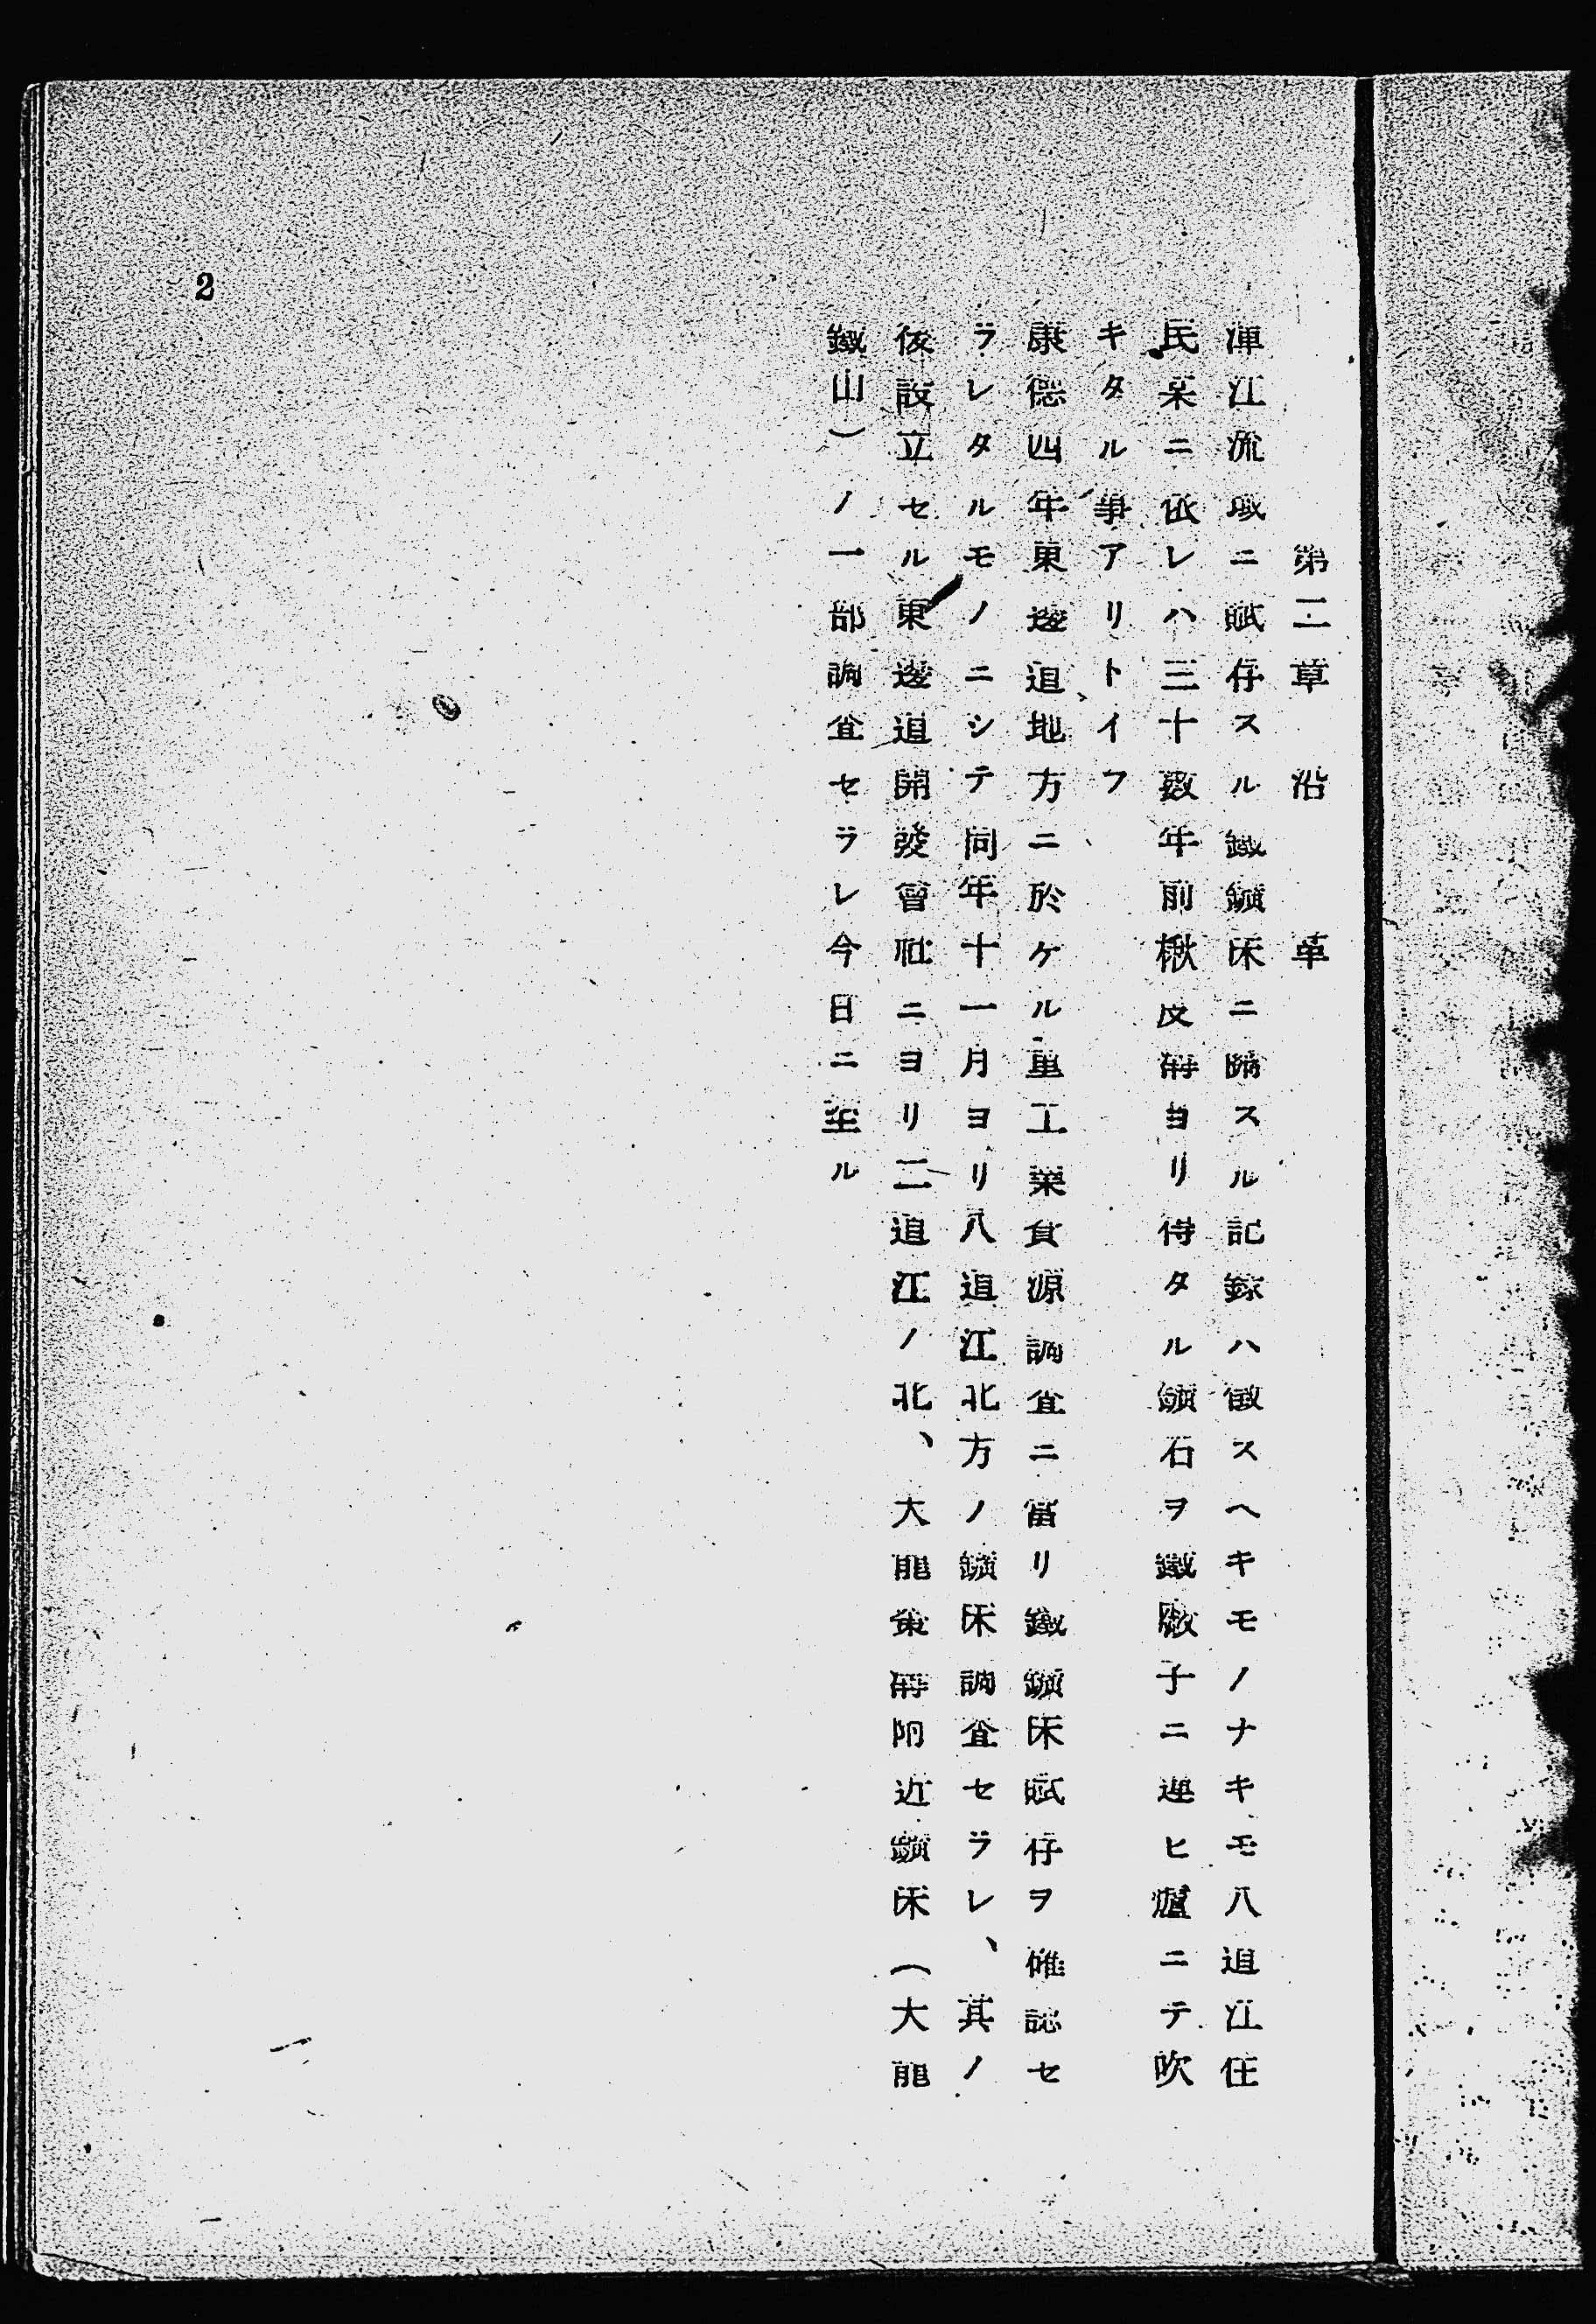 第二章 沿革
渾江流域ニ賦存スル鐵鑛床ニ關スル記錄ハ徴スヘキモノナキモ八道江住
民某ニ依レハ三十數年前楸皮溝ヨリ得タル鑛石ヲ鐵廠子ニ運ヒ爐ニテ吹
キタル事アリトイフ
康德四年東邊道地方ニ於ケル重工業資源調查ニ當リ鐵鑛床賦存ヲ確認セ
ラレタルモノニシテ同年十一月ヨリ八道江北方ノ鑛床調查セラレ、其ノ
後設立セル東邊道開發會社ニヨリ二道江ノ北、大龍溝附近鑛床(大龍
鐵山)ノ一部調查セラレ今日ニ至ル
2